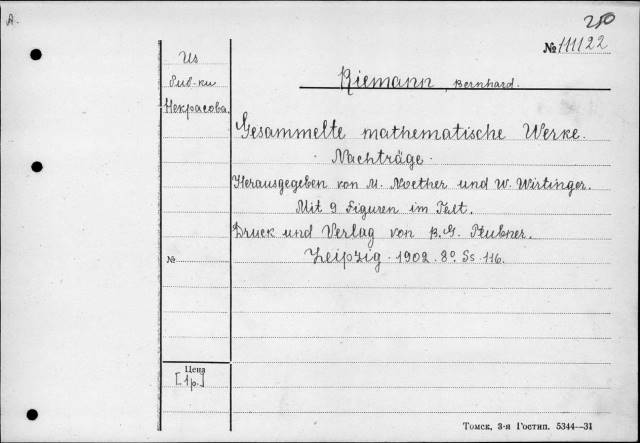 A.
250
№ 111122
Из
биб-ки
Некрасова.
Riemann, Bernhard.
Gesammelte mathematische Werke.
Nachträge.
Herausgegeben von M. Noether und W. Wirtinger.
Mit 9 Figuren im Text.
Druck und Verlag von B. G. Teubner.
Leipzig. 1902. 8° Ss. 116.
№
Цена
[1р.]
Томск, 3-я Гостип. 5344—31